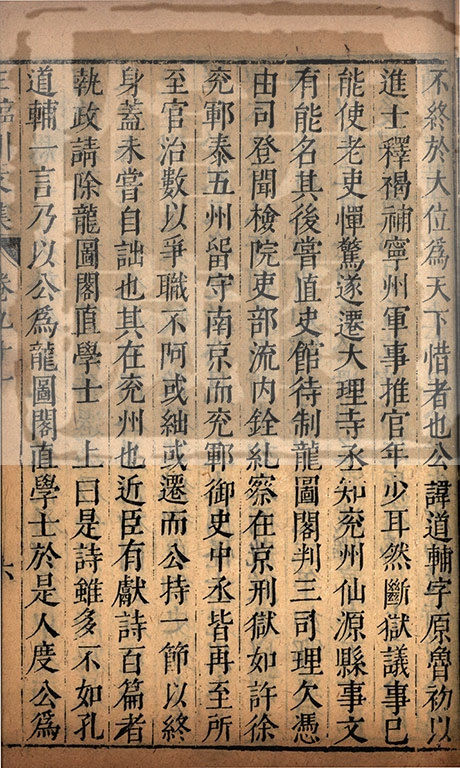 不終於大位爲天下惜者也公諱道輔字原魯初以
進士釋褐補寧州軍事推官年少耳然斷獄議事已
能使老吏憚驚遂遷大理寺丞知兖州仙源縣事文
有能名其後嘗直史館待制龍圖閣判三司理欠憑
由司登聞檢院吏部流内銓糾察在京刑獄如許徐
兖鄆泰五州留守南京而兖鄆御史中丞皆再至所
至官治數以爭職不阿或絀或遷而公持一節以終
身蓋未嘗自詘也其在兖州也近臣有獻詩百篇者
執政請除龍圖閣直學士 上曰是詩雖多不如孔
道輔一言乃以公爲龍圖閣直學士於是人度公爲
王臨川文集 卷九十一 六